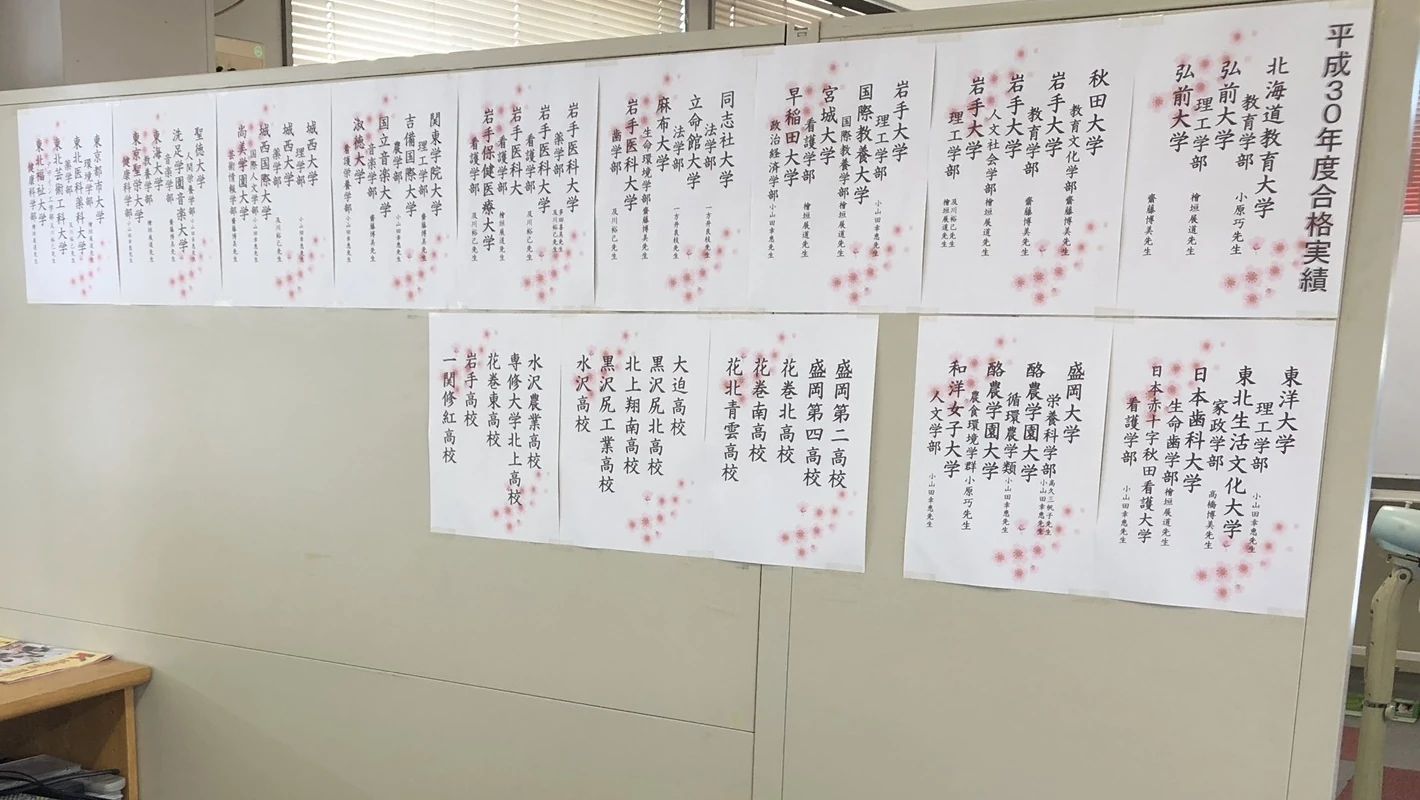 平成30年度合格実績
北海道教育大学
教育学部 小原巧先生
弘前大学
理工学部 檜垣展道先生
弘前大学
齋藤博美先生
秋田大学
教育文化学部 齋藤博美先生
岩手大学
教育学部 齋藤博美先生
岩手大学
人文社会学部 檜垣展道先生
岩手大学
理工学部 及川裕己先生
檜垣展道先生
岩手大学
理工学部 小山田幸惠先生
国際教養大学
国際教養学部 檜垣展道先生
宮城大学
看護学部 檜垣展道先生
早稲田大学
政治経済学部 小山田幸惠先生
同志社大学
法学部 一方井良枝先生
立命館大学
法学部 一方井良枝先生
麻布大学
生命環境学部 齋藤博美先生
岩手医科大学
歯学部 及川裕己先生
岩手医科大学
薬学部
岩手医科大学
看護学部 及川裕己先生
岩手医科大学
岩手保健医療大学
看護学部 及川裕己先生
関東学院大学
理工学部 齋藤博美先生
吉備国際大学
農学部 小山田幸惠先生
国立音楽大学
音楽学部 齋藤博美先生
淑徳大学
看護栄養学部 小山田幸惠先生
城西大学
理学部 小山田幸惠先生
城西大学
薬学部 及川裕己先生
城西国際大学
国際人文学部 小山田幸惠先生
尚美学園大学
芸術情報学部 齋藤博美先生
聖徳大学
人間栄養学部 小山田幸惠先生
洗足学園音楽大学
音楽学部 齋藤博美先生
東海大学
教養学部 檜垣展道先生
東京聖栄大学
健康科学部
東京都市大学
環境学部 檜垣展道先生
東北医科薬科大学
薬学部
東北芸術工科大学
東北福祉大学
健康科学部 檜垣展道先生
東洋大学
理工学部 小山田幸惠先生
東北生活文化大学
家政学部 高橋博美先生
日本歯科大学
生命歯学部 檜垣展道先生
日本赤十字秋田看護大学
看護学部 小山田幸惠先生
盛岡大学
栄養科学部 高久三帆子先生
小山田幸惠先生
酪農学園大学
循環農学類 小山田幸惠先生
酪農学園大学
農食環境学群 小原巧先生
和洋女子大学
人文学部 小山田幸惠先生
盛岡第二高校
盛岡第四高校
花巻北高校
花巻南高校
花北青雲高校
大迫高校
黒沢尻北高校
北上翔南高校
黒沢尻工業高校
水沢高校
水沢農業高校
専修大学北上高校
花巻東高校
岩手高校
一関修紅高校